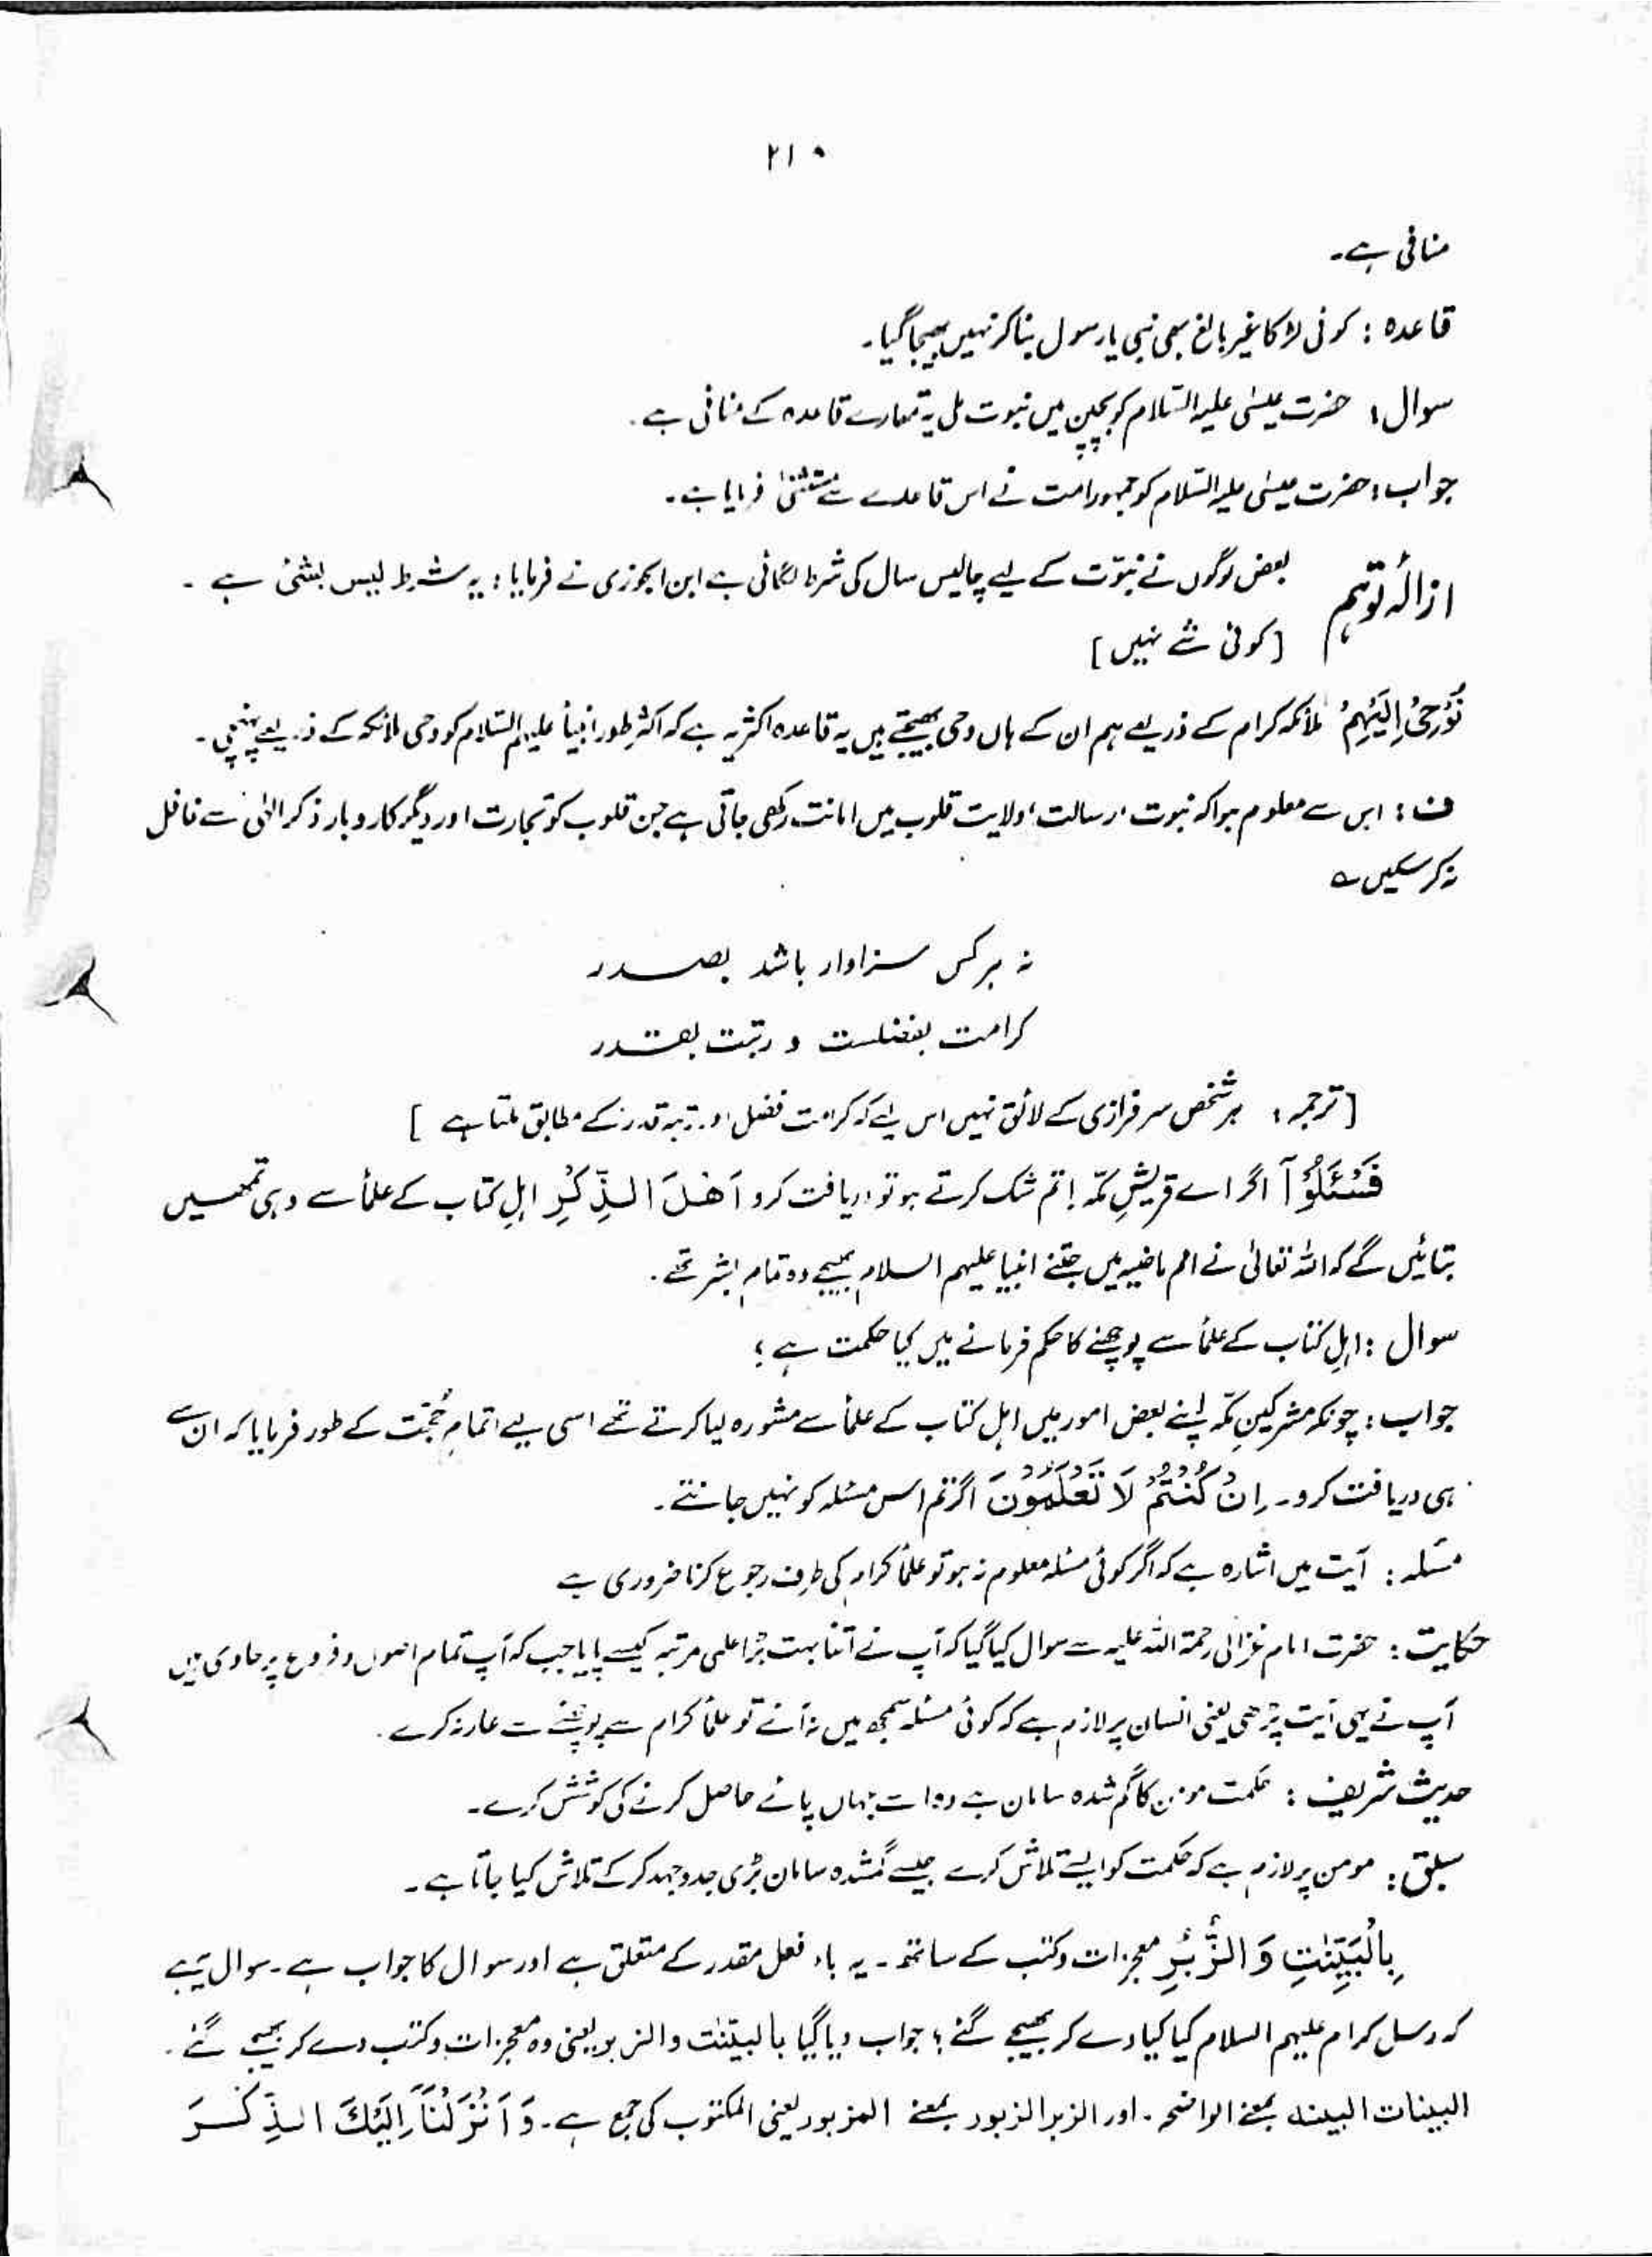 ۲۱۰
منافی ہے۔
قاعدہ : کوئی لڑکا غیر بالغ بھی نبی یا رسول بنا کر نہیں بھیجا گیا۔
سوال : حضرت عیسٰی علیہ السّلام کو بچپن میں نبوت ملی یہ تمھارے قاعدہ کے منافی ہے۔
جواب : حضرت عیسٰی علیہ السّلام کو جمہور امت نے اس قاعدے سے مستثنٰی فرمایا ہے۔
ازالۂ توہم بعض لوگوں نے نبوّت کے لیے چالیس سال کی شرط لگائی ہے ابن الجوزی نے فرمایا : یہ شرط لیس بشئ ہے ۔
[ کوئی شے نہیں ]
نُّوْحِیْۤ اِلَیْهِمْ ملائکہ کرام کے ذریعے ہم ان کے ہاں وحی بھیجتے ہیں یہ قاعدہ اکثریہ ہے کہ اکثر طور انبیأ علیہم السّلام کو وحی ملائکہ کے ذریعے پہنچی۔
ف : اس سے معلوم ہوا کہ نبوت ، رسالت ، ولایت قلوب میں امانت رکھی جاتی ہے جن قلوب کو تجارت اور دیگر کاروبار ذکر الٰہی سے غافل
نہ کرسکیں ؎
نہ ہر کس سزاوار باشد بصدر
کرامت بفضلست و رتبت بقدر
[ ترجمہ : ہر شخص سرفرازی کے لائق نہیں اس لیے کہ کرامت فضل اور رتبہ قدر کے مطابق ملتا ہے ]
فَسْئَلُوْۤا اگر اے قریشِ مکّہ ! تم شک کرتے ہو تو دریافت کرو اَهْلَ الذِّكْرِ اہلِ کتاب کے علمأ سے وہی تمھیں
بتائیں گے کہ اللہ تعالٰی نے امم ماضیہ میں جتنے انبیا علیہم السلام بھیجے وہ تمام بشر تھے۔
سوال : اہلِ کتاب کے علمأ سے پوچھنے کا حکم فرمانے میں کیا حکمت ہے ؟
جواب : چونکہ مشرکینِ مکّہ اپنے بعض امور میں اہل کتاب کے علمأ سے مشورہ لیا کرتے تھے اسی لیے اتمامِ حُجّت کے طور فرمایا کہ ان سے
ہی دریافت کرو۔ اِنْ كُنْتُمْ لَا تَعْلَمُوْنَ اگر تم اس مسئلہ کو نہیں جانتے۔
مسئلہ : آیت میں اشارہ ہے کہ اگر کوئی مسئلہ معلوم نہ ہو تو علمأ کرام کی طرف رجوع کرنا ضروری ہے
حکایت : حضرت امام غزالی رحمۃ اللہ علیہ سے سوال کیا گیا کہ آپ نے اتنا بہت بڑا علمی مرتبہ کیسے پایا جب کہ آپ تمام اصول و فروع پر حاوی ہیں
آپ نے یہی آیت پڑھی یعنی انسان پر لازم ہے کہ کوئی مسئلہ سمجھ میں نہ آئے تو علمأ کرام سے پوچھنے سے عار نہ کرے۔
حدیث شریف : حکمت مومن کا گم شدہ سامان ہے وہ اسے جہاں پائے حاصل کرنے کی کوشش کرے۔
سبق : مومن پر لازم ہے کہ حکمت کو ایسے تلاش کرے جیسے گمشدہ سامان بڑی جدوجہد کرکے تلاش کیا جاتا ہے۔
بِالْبَیِّنٰتِ وَالزُّبُرِ معجزات و کتب کے ساتھ۔ یہ باء فعل مقدر کے متعلق ہے اور سوال کا جواب ہے۔ سوال یہ ہے
کہ رسل کرام علیہم السلام کیا کیا دے کر بھیجے گئے ؟ جواب دیا گیا بالبیّنٰت والزبر یعنی وہ معجزات و کتب دے کر بھیجے گئے۔
البینات البینہ بمعنے الواضحہ۔ اور الزبر الزبور بمعنے المزبور یعنی المکتوب کی جمع ہے۔ وَاَنْزَلْنَاۤ اِلَیْكَ الذِّكْرَ